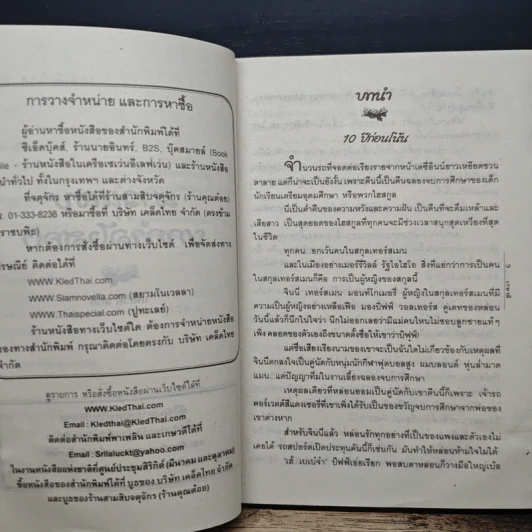 การวางจำหน่าย และการหาซื้อ
ผู้อ่านหาซื้อหนังสือของสำนักพิมพ์ได้ที่
ซีเอ็ดบุ๊คส์, ร้านนายอินทร์, B2S, บุ๊คสมายล์ (Book
ile - ร้านหนังสือในเครือเซเว่นอีเลฟเว่น) และร้านหนังสือ
นำทั่วไป ทั้งในกรุงเทพฯ และต่างจังหวัด
ที่จตุจักร หาซื้อได้ที่ร้านสามสิบจตุจักร (ร้านคุณต้อย)
01-333-8238 หรือมาซื้อที่ บริษัท เคล็ดไทย จำกัด (ตรงข้าม
ราชบพิธ)
หากต้องการสั่งซื้อผ่านทางเว็บไซต์ เพื่อจัดส่งทาง
รษณีย์ ติดต่อได้ที่
www.KledThai.com
www.Siamnovella.com (สยามโนเวลลา)
www.Thaispecial.com (ปูทะเลย์)
ร้านหนังสือทางเว็บไซต์ใด ต้องการจำหน่ายหนังสือ
ของทางสำนักพิมพ์ กรุณาติดต่อโดยตรงกับ บริษัท เคล็ดไทย
จำกัด
ดูรายการ หรือสั่งซื้อหนังสือผ่านเว็บไซต์ได้ที่
www.KledThai.com
Email : Kledthai@KledThai.com
ติดต่อสำนักพิมพ์พาเพลิน และเกษวดีได้ที่
Email : Srilaluckt@yahoo.com
ในงานหนังสือแห่งชาติที่ศูนย์ประชุมสิริกิติ์ (มีนาคม และตุลาคม)
ซื้อหนังสือของสำนักพิมพ์ได้ที่ บูธของ บริษัท เคล็ดไทย จำกัด
และบูธของร้านสามสิบจตุจักร (ร้านคุณต้อย)
บทนำ
10 ปีก่อนโน้น
จำนวนรถที่จอดต่อเรียงรายจากหน้าเดซี่อินน์ยาวเหยียดชวน
ตาลาย แต่ก็น่าจะเป็นยังงั้น เพราะคืนนี้เป็นคืนฉลองจบการศึกษาของเด็ก
นักเรียนเตรียมอุดมศึกษา หรือพวกไฮสกูล
นี่เป็นค่ำคืนของความหวังและความฝัน เป็นคืนที่จะดื่มเหล้าและ
เสียสาว เป็นสุดยอดของไฮสกูลที่ทุกคนจะมีช่วงเวลาสนุกสุดเหวี่ยงที่สุด
ในชีวิต
ทุกคน..ยกเว้นคนในสกุลเทอร์สเมน
และในเมืองอย่างเมอร์รี่วิลล์ รัฐโอไฮโอ สิ่งที่แย่กว่าการเป็นคน
ในสกุลเทอร์สเมนก็คือ การเป็นผู้หญิงของสกุลนี้
จินนี่ เทอร์สเมน มอนท์โกเมอรี่ ผู้หญิงในสกุลเทอร์สเมนที่มี
ความเป็นผู้หญิงอย่างเหลือเฟือ มองบิฟฟ์ วอลเทอร์ส คู่เดทของหล่อน
วันนี้แล้วก็นึกในใจว่า นึกไม่ออกเลยว่ามีแม่คนไหนไม่ชอบลูกชายแท้ๆ
เพิ่ง คลอดของตัวเองถึงขนาดตั้งชื่อให้เขาว่าบิฟฟ์!
แต่ชื่อเสียงเรียงนามของเขาจะเป็นฉันใดไม่เกี่ยวข้องกับเหตุผลที่
จินนี่ตกลงใจเป็นคู่นัดกับหนุ่มนักกีฬาฟุตบอลสูง ผมบลอนด์ หุ่นล่ำมาด
แมน...แต่ปัญญาทึ่มในงานเลี้ยงฉลองจบการศึกษา
เหตุผลเดียวที่หล่อนยอมเป็นคู่นัดกับเขาคืนนี้ก็เพราะ เจ้ารถ
คอร์เวตต์สีแดงเชอรี่ที่เขาเพิ่งได้รับเป็นของขวัญจบการศึกษาจากพ่อของ
เขาต่างหาก
สำหรับจินนี่แล้ว หล่อนรักทุกอย่างที่เป็นของแพงและตัวเองไม่
เคยได้ รถสปอร์ตเปิดประทุนคันนี้ก็เช่นกัน มันทำให้หล่อนห้ามใจไม่ได้
"เฮ้ เบเบ๋จ๋า" บิฟฟี่เอ่ยเรียก พอสบตาหล่อนก็วางมือใหญ่เบ้อ